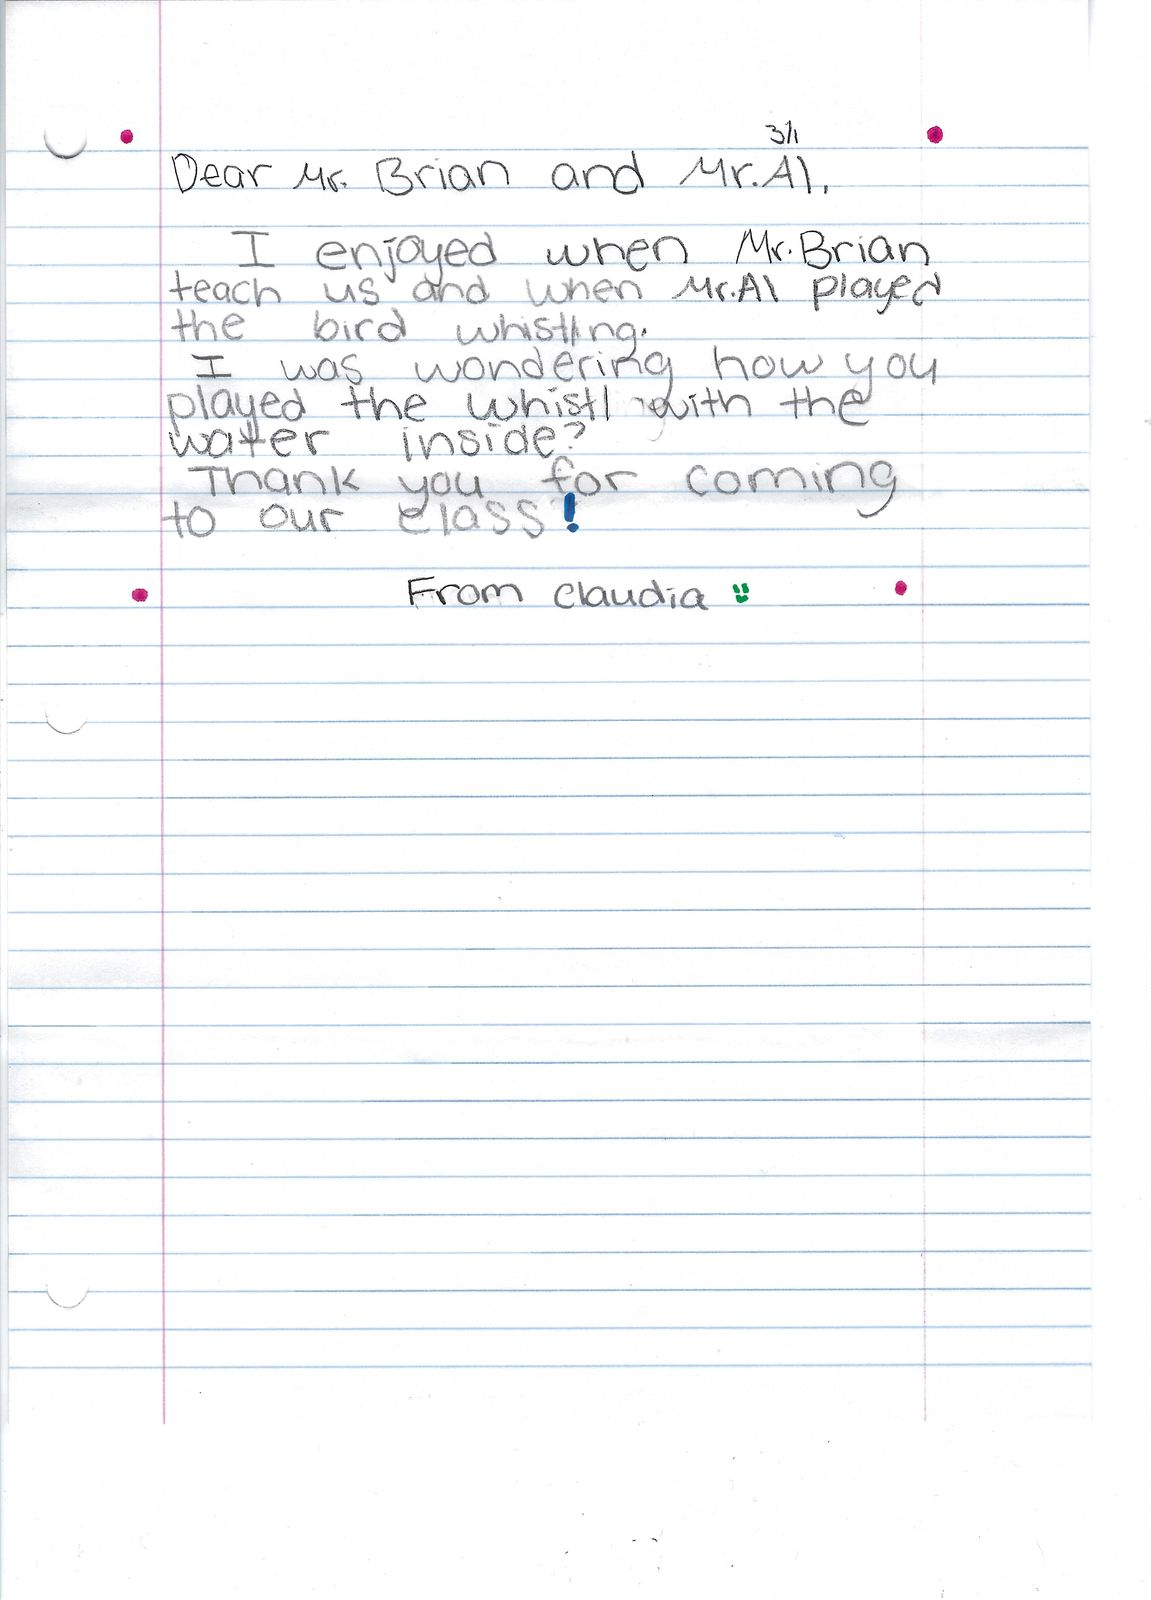 3/1
Dear Mr. Brian and Mr. Al,
I enjoyed when Mr. Brian
teach us and when Mr. Al played
the bird whistling.
I was wondering how you
played the whistl with the
water inside?
Thank you for coming
to our class!
From Claudia